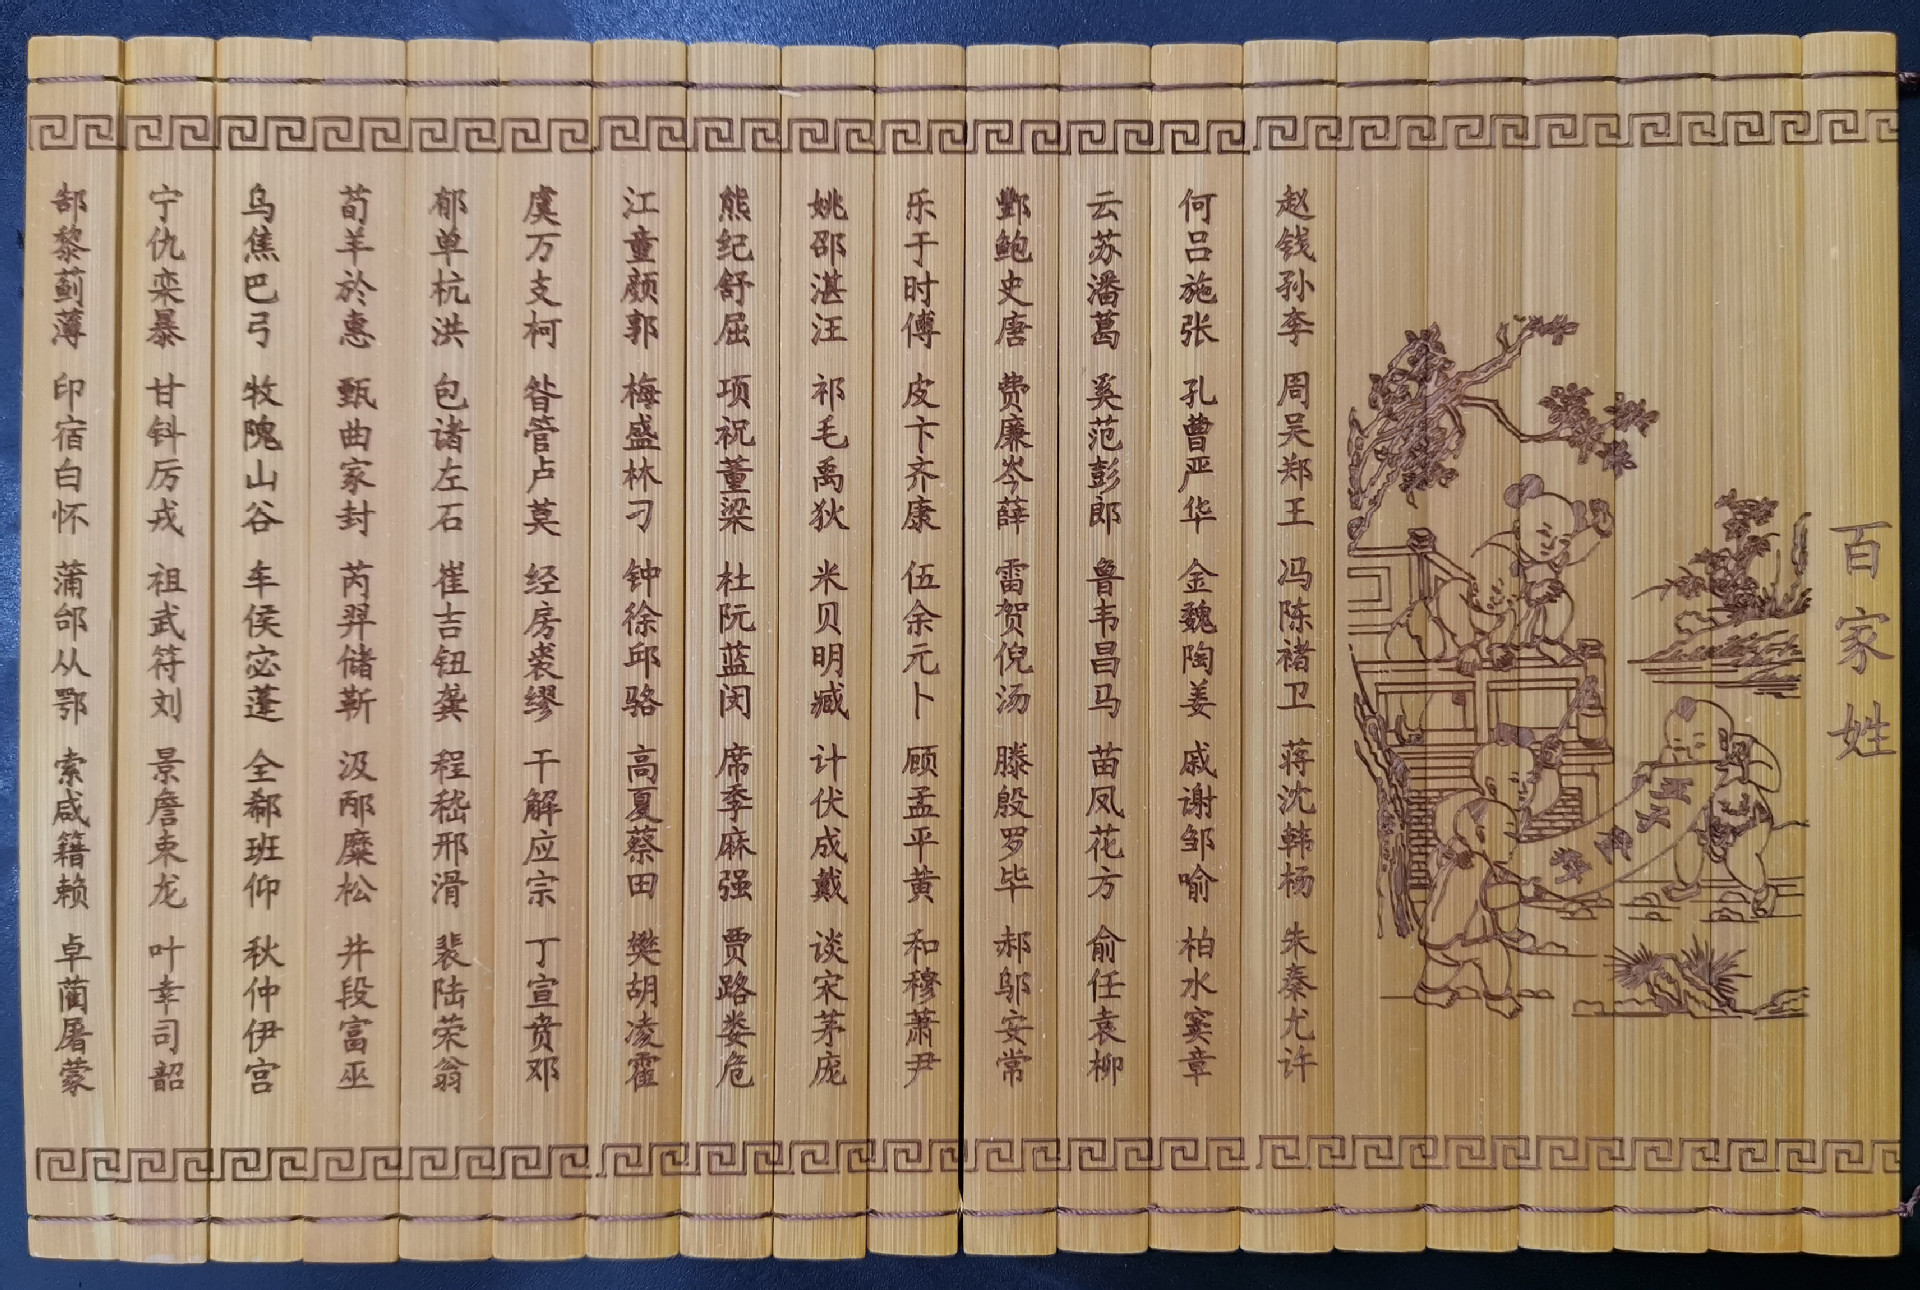 百家姓
赵钱孙李 周吴郑王 冯陈褚卫 蒋沈韩杨 朱秦尤许
何吕施张 孔曹严华 金魏陶姜 戚谢邹喻 柏水窦章
云苏潘葛 奚范彭郎 鲁韦昌马 苗凤花方 俞任袁柳
酆鲍史唐 费廉岑薛 雷贺倪汤 滕殷罗毕 郝邬安常
乐于时傅 皮卞齐康 伍余元卜 顾孟平黄 和穆萧尹
姚邵湛汪 祁毛禹狄 米贝明臧 计伏成戴 谈宋茅庞
熊纪舒屈 项祝董梁 杜阮蓝闵 席季麻强 贾路娄危
江童颜郭 梅盛林刁 钟徐邱骆 高夏蔡田 樊胡凌霍
虞万支柯 昝管卢莫 经房裘缪 干解应宗 丁宣贲邓
郁单杭洪 包诸左石 崔吉钮龚 程嵇邢滑 裴陆荣翁
荀羊於惠 甄曲家封 芮羿储靳 汲邴糜松 井段富巫
乌焦巴弓 牧隗山谷 车侯宓蓬 全郗班仰 秋仲伊宫
宁仇栾暴 甘钭厉戎 祖武符刘 景詹束龙 叶幸司韶
郜黎蓟薄 印宿白怀 蒲邰从鄂 索咸籍赖 卓蔺屠蒙